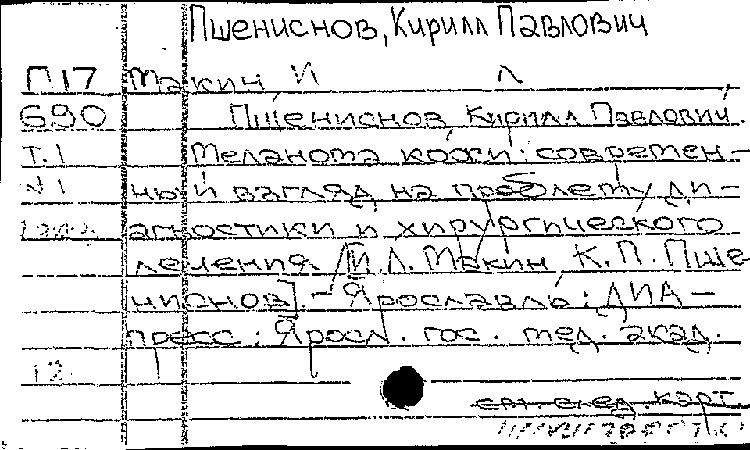 Пшениснов, Кирилл Павлович
П17 Макин И Л
690 Пшениснов, Кирилл Павлович.
Т.1 Меланома кожи: современ-
№1 ный взгляд на проблему ди-
агностики и хирургического
лечения / [И.Л. Макин, К.П. Пше-
ниснов]. - Ярославль: ДИА-
пресс: Яросл. гос. мед. акад.
12
см. след. карт.